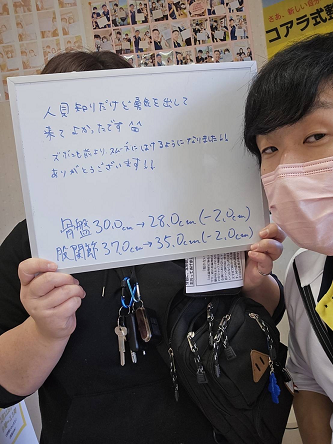 人見知りだけど勇気を出して
来てよかったです
ズボンも前より、スムーズにはけるようになりました!!
ありがとうございます!!
骨盤 30.0cm→28.0cm(-2.0cm)
股関節 37.0cm→35.0cm(-2.0cm)
さあ、新しい自分
コアラ式